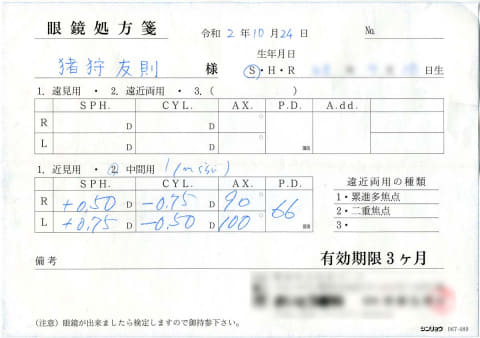 眼鏡処方箋 令和 2 年 10 月 24 日 No.
生年月日
猪狩 友則 様 S・H・R 日生
1. 遠見用 ・ 2. 遠近両用 ・ 3. ( )
SPH. CYL. AX. P.D. A.dd.
R D D °
L D D °
1. 近見用 ・ 2. 中間用
SPH. CYL. AX. P.D. 遠近両用の種類
R +0.50 D -0.75 D 90 ° 66 1・累進多焦点
L +0.75 D -0.50 D 100 ° 2・二重焦点
3・
備考 有効期限3ヶ月
(注意) 眼鏡が出来ましたら検定しますので御持参下さい。 シンリョウ D67-489